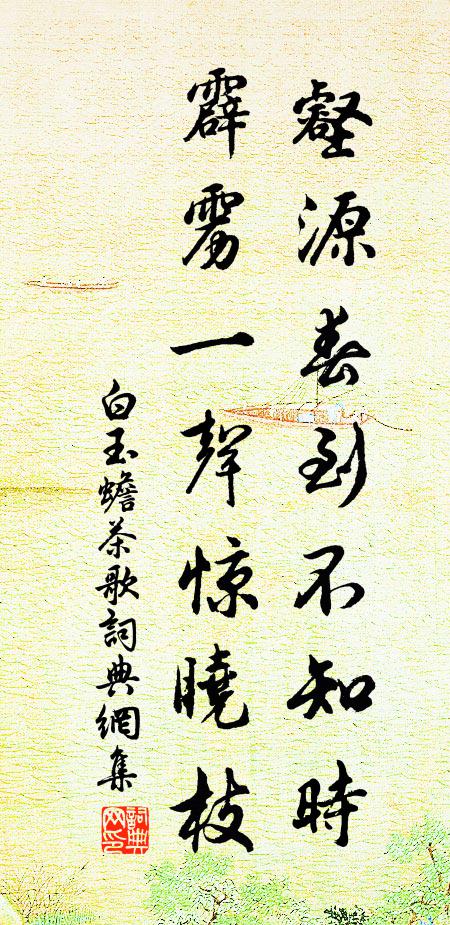 壑源春到不知時
霹雳一聲惊曉枝
白玉蟾茶歌詞典網集
詞典网印